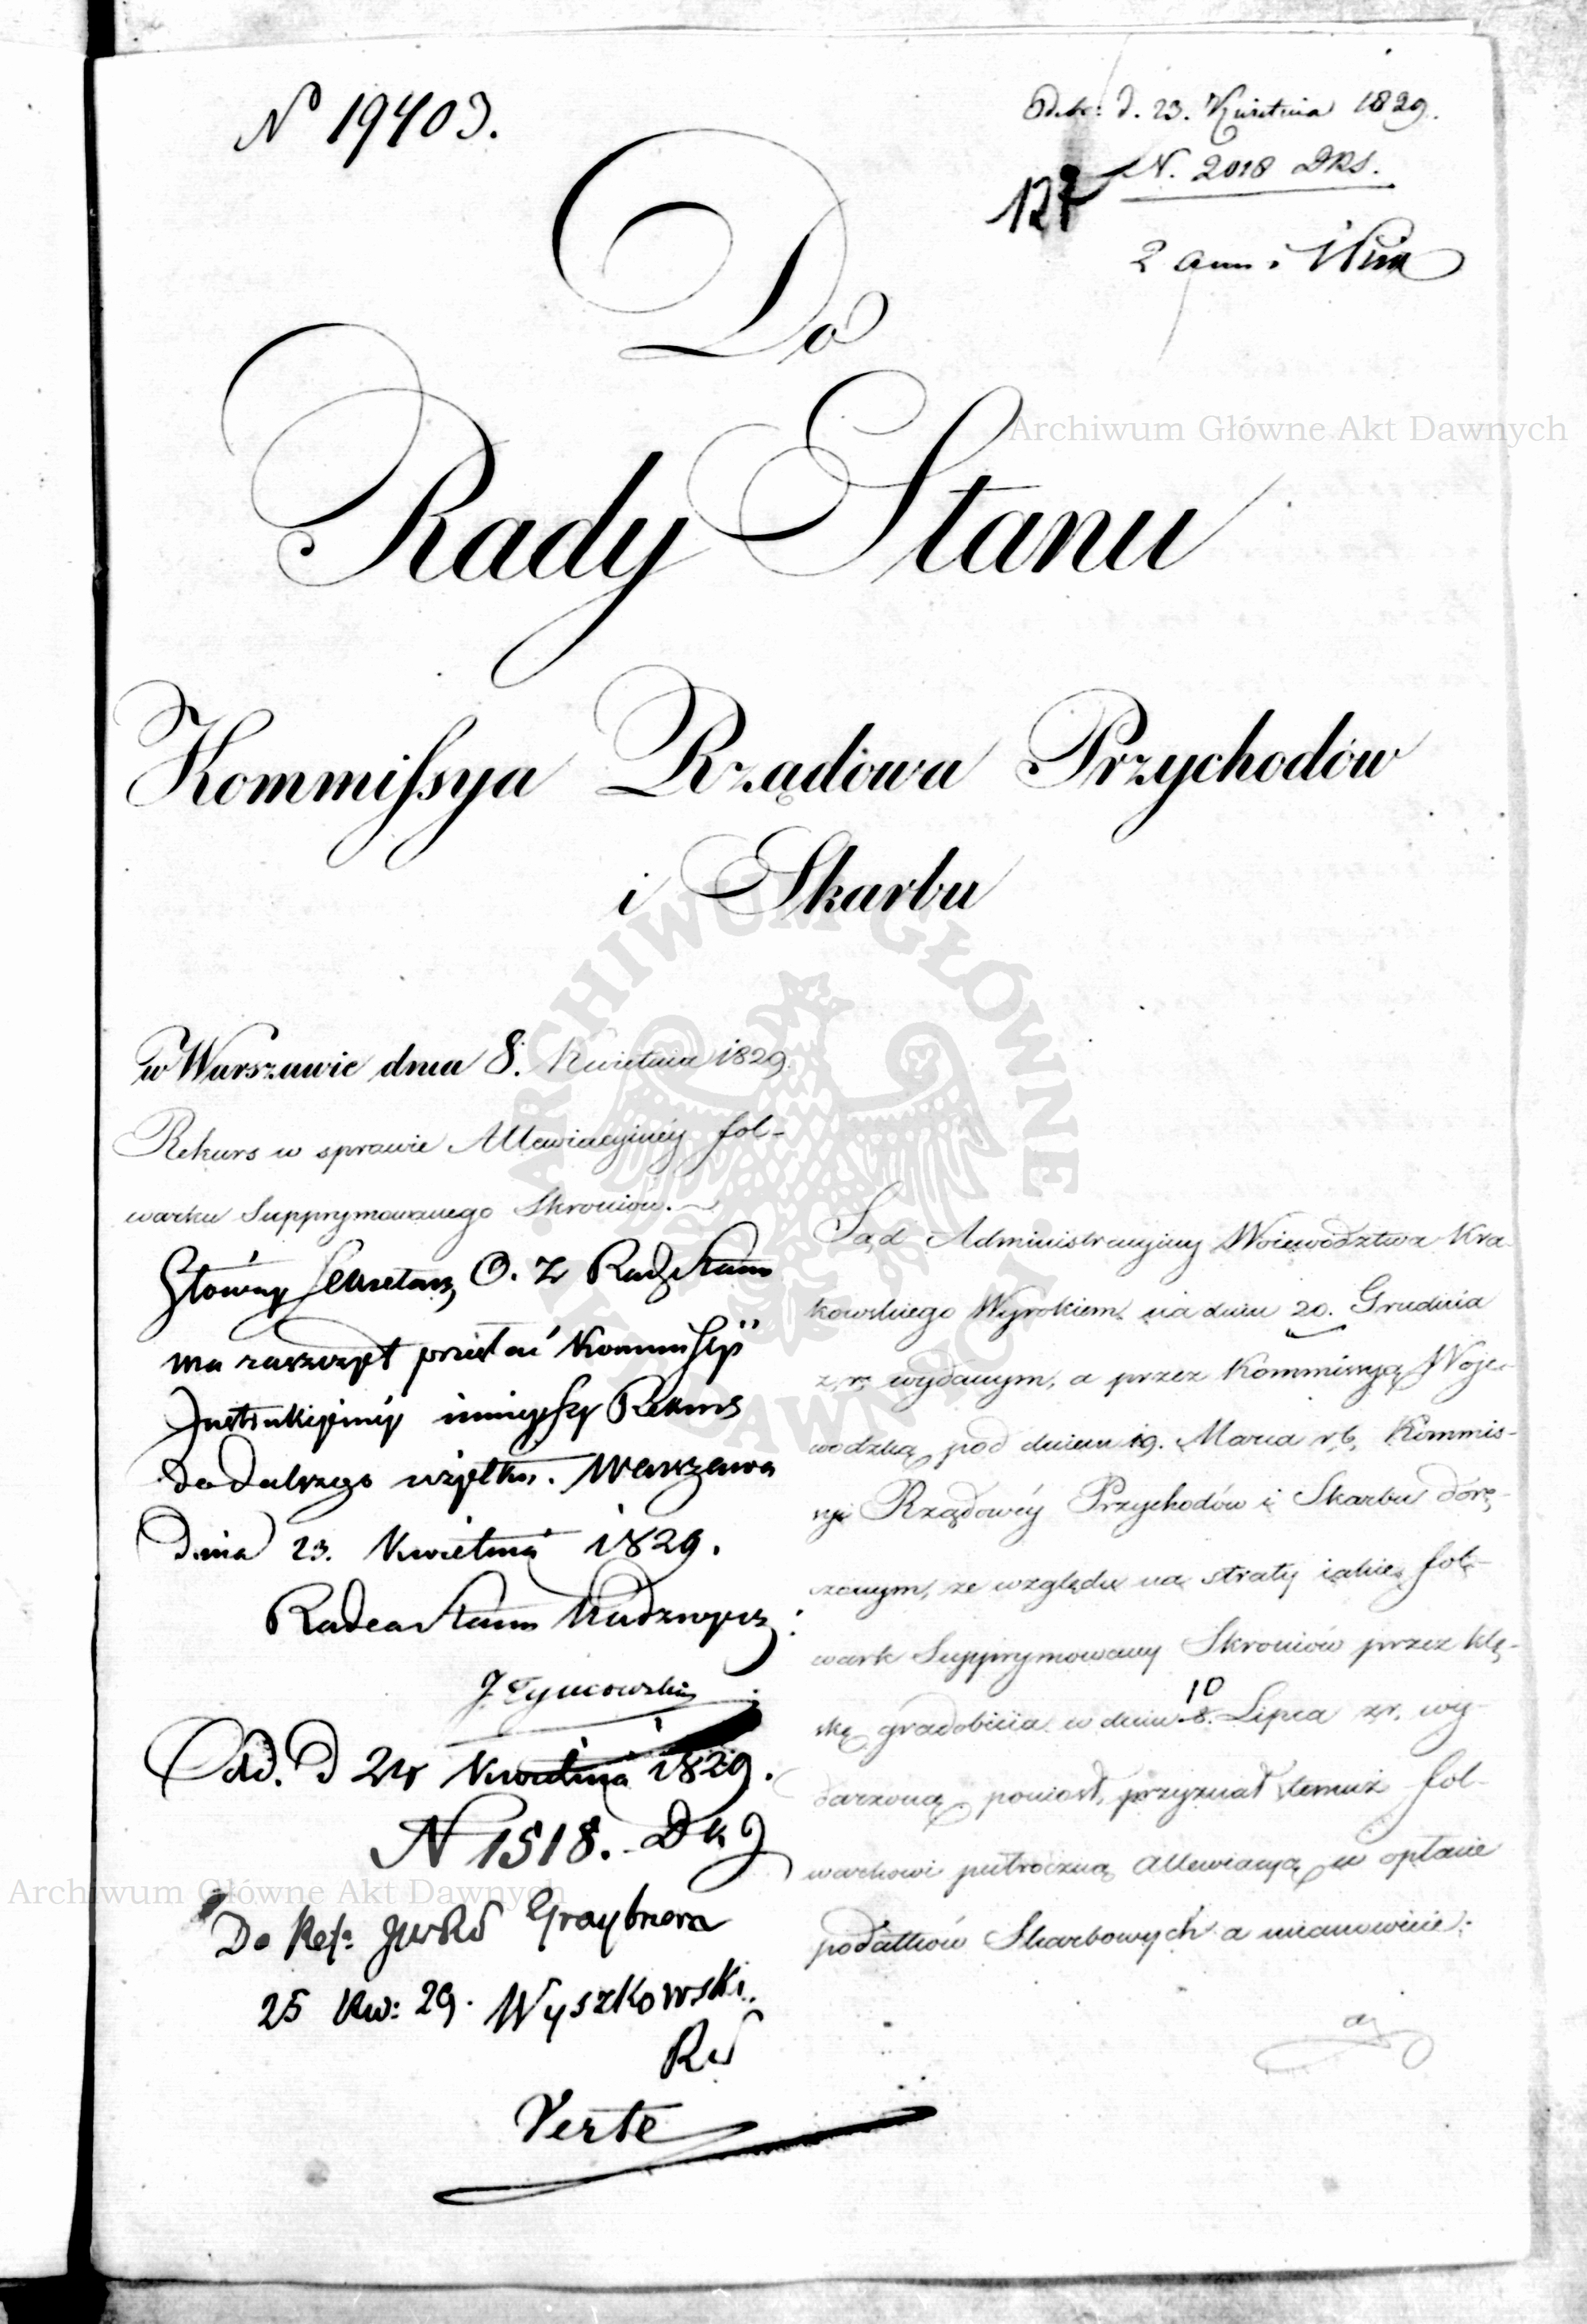 N 19403.
Odeb: d. 23. Kwietnia 1829.
N. 2018 DRS.
127
Do
Rady Stanu
Kommissya Rządowa Przychodów
i Skarbu
w Warszawie dnia 8. Kwietnia 1829.
Rekurs w sprawie Allewiacyjnéy fol-
warku Supprymowanego Skroniów.
Główny Sekretarz, O. Z Rady Stanu
ma zaszczyt przesłać Kommissyi
Instrukcyinéy ninieyszy Rekurs
do dalszego użytku. Warszawa
Dnia 23. Kwietnia 1829.
Radca Stanu
J. Tymowski
Odd. D 24 Kwietnia 1829.
N 1518. D k J
Do Ref: Graybnera
25 Kw: 29. Wyszkowski.
RS
Verte
Sąd Administracyjny Woiewództwa Kra-
kowskiego Wyrokiem na dniu 20. Grudnia
z. r. wydanym, a przez Kommissyą Woje-
wodzką pod dniem 19. Marca r. b. Kommis-
syi Rządowéy Przychodów i Skarbu dorę-
czonym, ze względu na straty iakie fol-
wark Supprymowany Skroniów przez klę-
skę gradobicia w dniu 8. 10 Lipca z. r. wy-
darzoną poniosł, przyznał temuż fol-
warkowi pułroczną allewiacyą w opłacie
podatków Skarbowych a mianowicie:
a,
Archiwum Główne Akt Dawnych
Archiwum Główne Akt Dawnych
ARCHIWUM GŁÓWNE AKT DAWNYCH